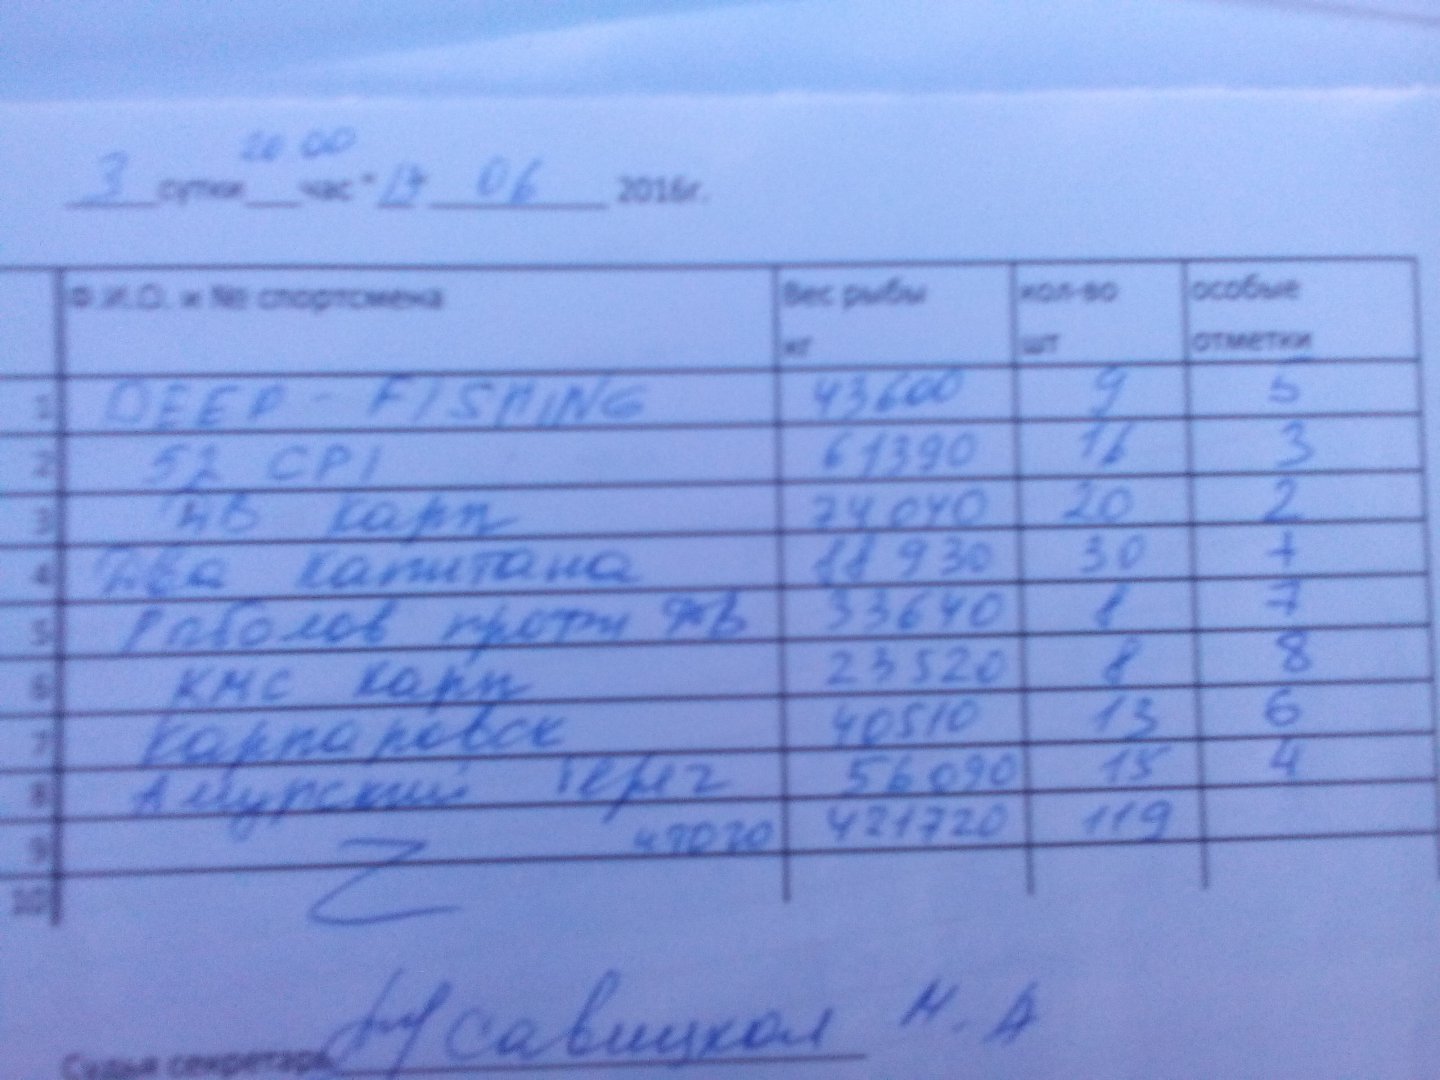 20 00
3 сутки час " 17 06 2016г.
Ф.И.О. и № спортсмена Вес рыбы кг кол-во шт особые отметки
1 DEEP - FISHING 43600 9 5
2 52 CPI 61390 16 3
3 ДВ карп 74040 20 2
4 Два капитана 11930 30 1
5 Рыболов проти 33640 8 7
6 КМС карп 23520 8 8
7 Карпаровск 40510 13 6
8 Амурский берег 56090 15 4
9 421720 119
10
Судья секретарь Савицкая Н. А